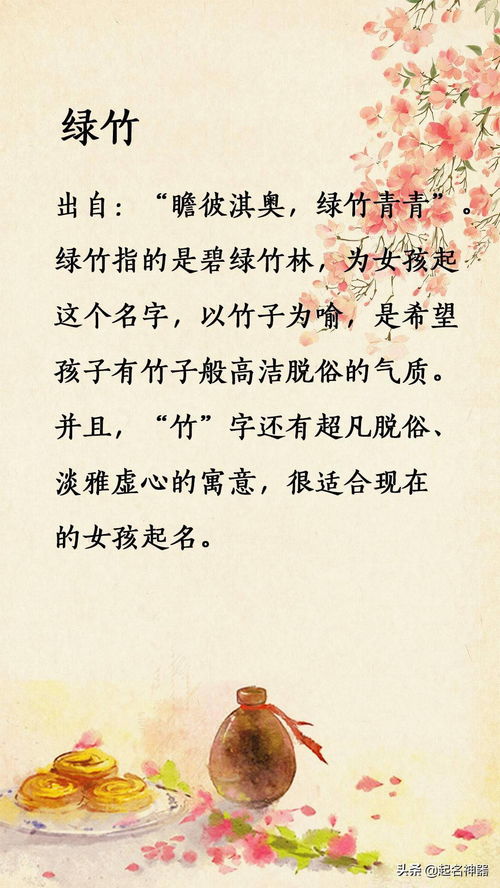 绿竹
出自：“瞻彼淇奥，绿竹青青”。
绿竹指的是碧绿竹林，为女孩起
这个名字，以竹子为喻，是希望
孩子有竹子般高洁脱俗的气质。
并且，“竹”字还有超凡脱俗、
淡雅虚心的寓意，很适合现在
的女孩起名。
头条 @起名神器